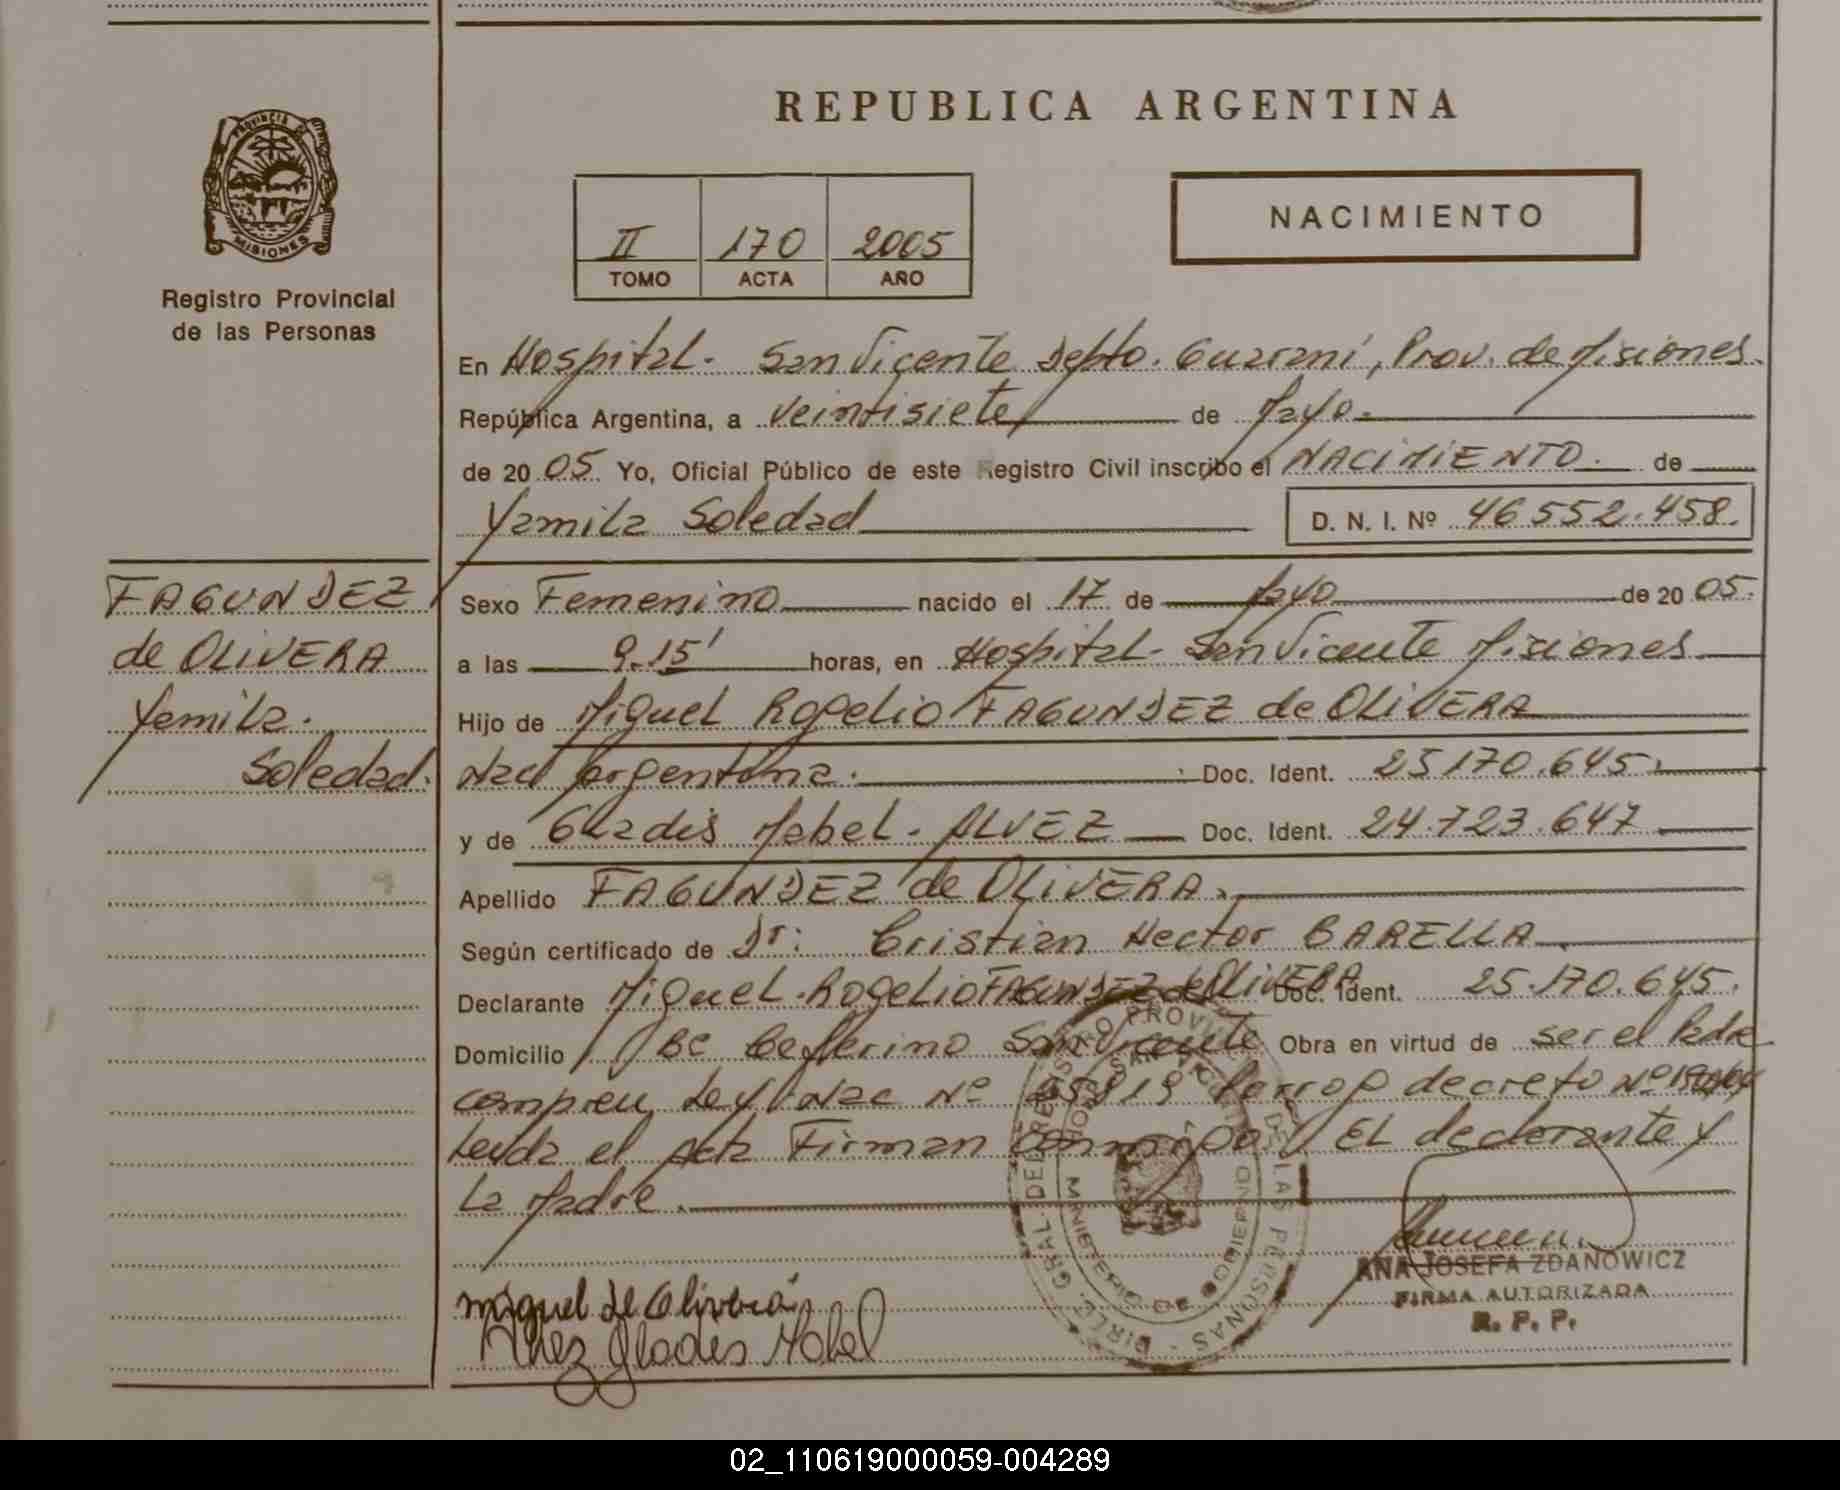 REPUBLICA ARGENTINA
PROVINCIA DE
MISIONES
Registro Provincial
de las Personas
II 170 2005
TOMO ACTA AÑO
NACIMIENTO
En Hospital. San Vicente Depto. Guarani, Prov. de Misiones.
República Argentina, a veintisiete de Mayo.
de 20 05. Yo, Oficial Público de este Registro Civil inscribo el NACIMIENTO. de
Yamila Soledad D. N. I. Nº 46.552.458.
FAGUNDEZ
de OLIVERA
Yamila.
Soledad.
Sexo Femenino nacido el 17 de Mayo de 20 05.
a las 9.15' horas, en Hospital. San Vicente Misiones
Hijo de Miguel Rogelio FAGUNDEZ de OLIVERA
Nac argentina. Doc. Ident. 25.170.645.
y de Gladis Mabel. ALVEZ Doc. Ident. 24.723.647
Apellido FAGUNDEZ de OLIVERA.
Según certificado de Dr: Cristian Hector BARELLA.
Declarante Miguel. Rogelio FAGUNDEZ de OLIVERA Doc. Ident. 25.170.645.
Domicilio Bº Ceferino San Vicente Obra en virtud de ser el Padre
Ley Nac Nº decreto Nº
Leida el Acta Firman conmigo EL declarante y
La Madre.
miguel de Olivera
Alvez Glades Mabel
ANA JOSEFA ZDANOWICZ
FIRMA AUTORIZADA
R. P. P.
DIREC. GRAL. DEL REGISTRO PROVINCIAL DE LAS PERSONAS
MINISTERIO DE GOBIERNO
02_110619000059-004289